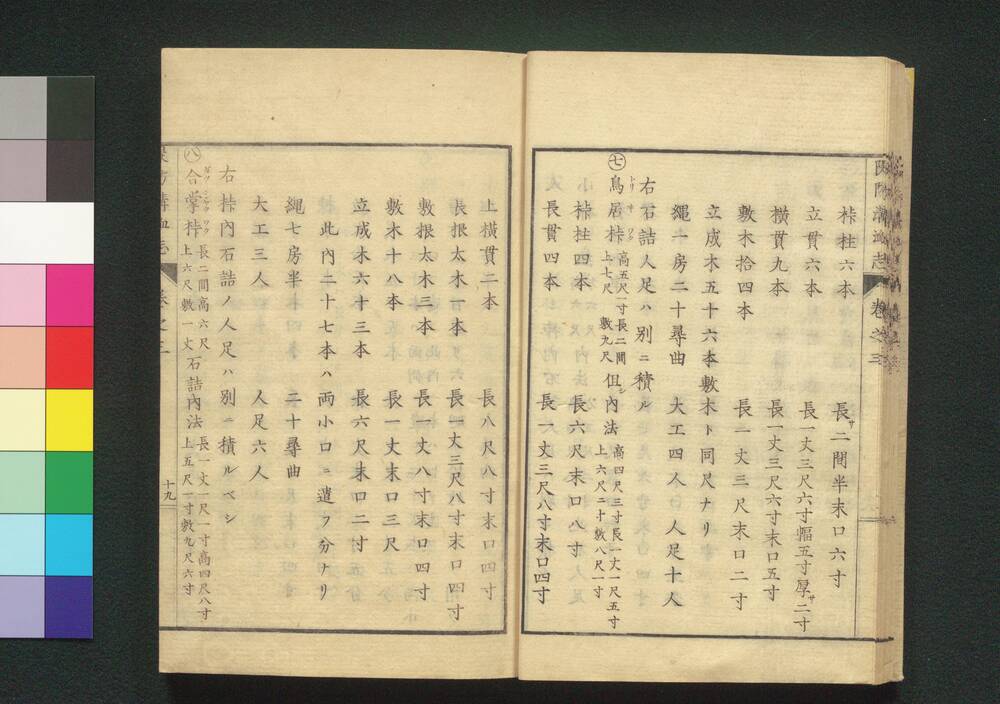 巻之三
枠柱六本 長サ二間半末口六寸
立貫六本 長一丈三尺六寸幅五寸厚サ二寸
横貫九本 長一丈三尺六寸末口五寸
敷木拾四本 長一丈三尺末口二寸
立成木五十六本敷木ト同尺ナリ
繩一房二十尋曲 大工四人 人足十人
右石詰人足ハ別ニ積ル
㊆鳥居枠 高五尺一寸長二間上七尺敷九尺 但シ内法 高四尺三寸長一丈一尺五寸上六尺二寸敷八尺一寸
枠柱四本 長六尺末口八寸
長貫四本 長一丈三尺八寸末口四寸
上横貫二本 長八尺八寸末口四寸
長根太木一本 長一丈三尺八寸末口四寸
敷根太木三本 長一丈八寸末口四寸
敷木十八本 長一丈末口三尺
立成木六十三本 長六尺末口二寸
此内二十七本ハ両小口ニ遣フ分ナリ
繩七房半 二十尋曲
大工三人 人足六人
右枠内石詰ノ人足ハ別ニ積ルベシ
㊇合掌枠 長二間高六尺上六尺敷一丈 石詰内法 長一丈一尺一寸高四尺八寸上五尺一寸敷九尺六寸
十九